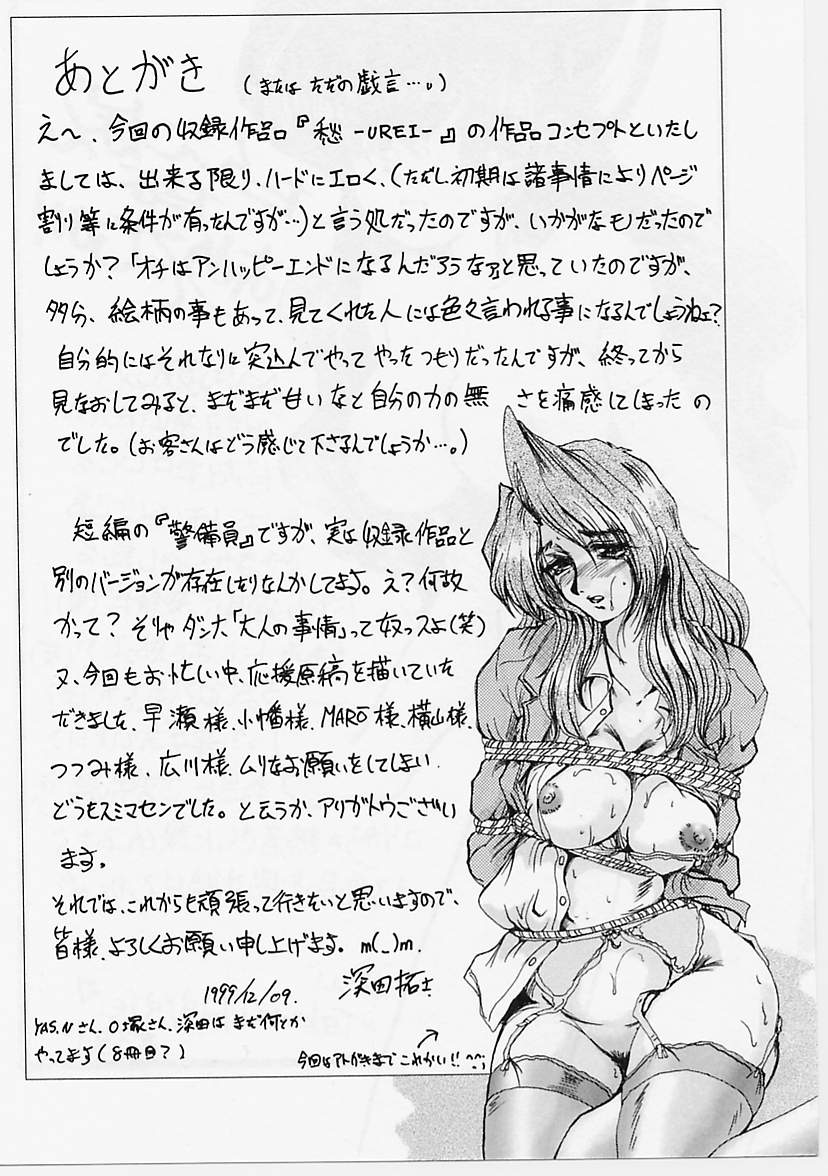 あとがき (またはただの戯言…。)
えー、今回の収録作品『愁 -UREI-』の作品コンセプトといたし
ましては、出来る限り、ハードにエロく、(ただし初期は諸事情によりページ
割り等に条件が有ったんですが…)と言う処だったのですが、いかがなモノだったので
しょうか?「オチはアンハッピーエンドになるんだろうなァ」と思っていたのですが、
多分、絵柄の事もあって、見てくれた人には色々言われる事になるんでしょうねェ?
自分的にはそれなりに突込んでやってやったつもりだったんですが、終ってから
見なおしてみると、まだまだ甘いなと自分の力の無さを痛感してしまったの
でした。(お客さんはどう感じて下さるんでしょうか…。)
短編の『警備員』ですが、実は収録作品と
別のバージョンが存在しもりなんかしてます。え?何故
かって?そりゃダンナ「大人の事情」って奴っスよ(笑)
又、今回もお忙しい中、応援原稿を描いていた
だきました、早瀬様、小幡様、MARO様、横山様、
つつみ様、広川様、ムリなお願いをしてしまい
どうもスミマセンでした。と云うか、アリガトウござい
ます。
それでは、これからも頑張って行きたいと思いますので、
皆様、よろしくお願い申し上げます。m(_)m.
1999/12/09. 深田拓士
YAS.Nさん、O塚さん、深田はまだ何とか
やってます(8冊目?)
今回はアトがきまでこれかい!! ^^;